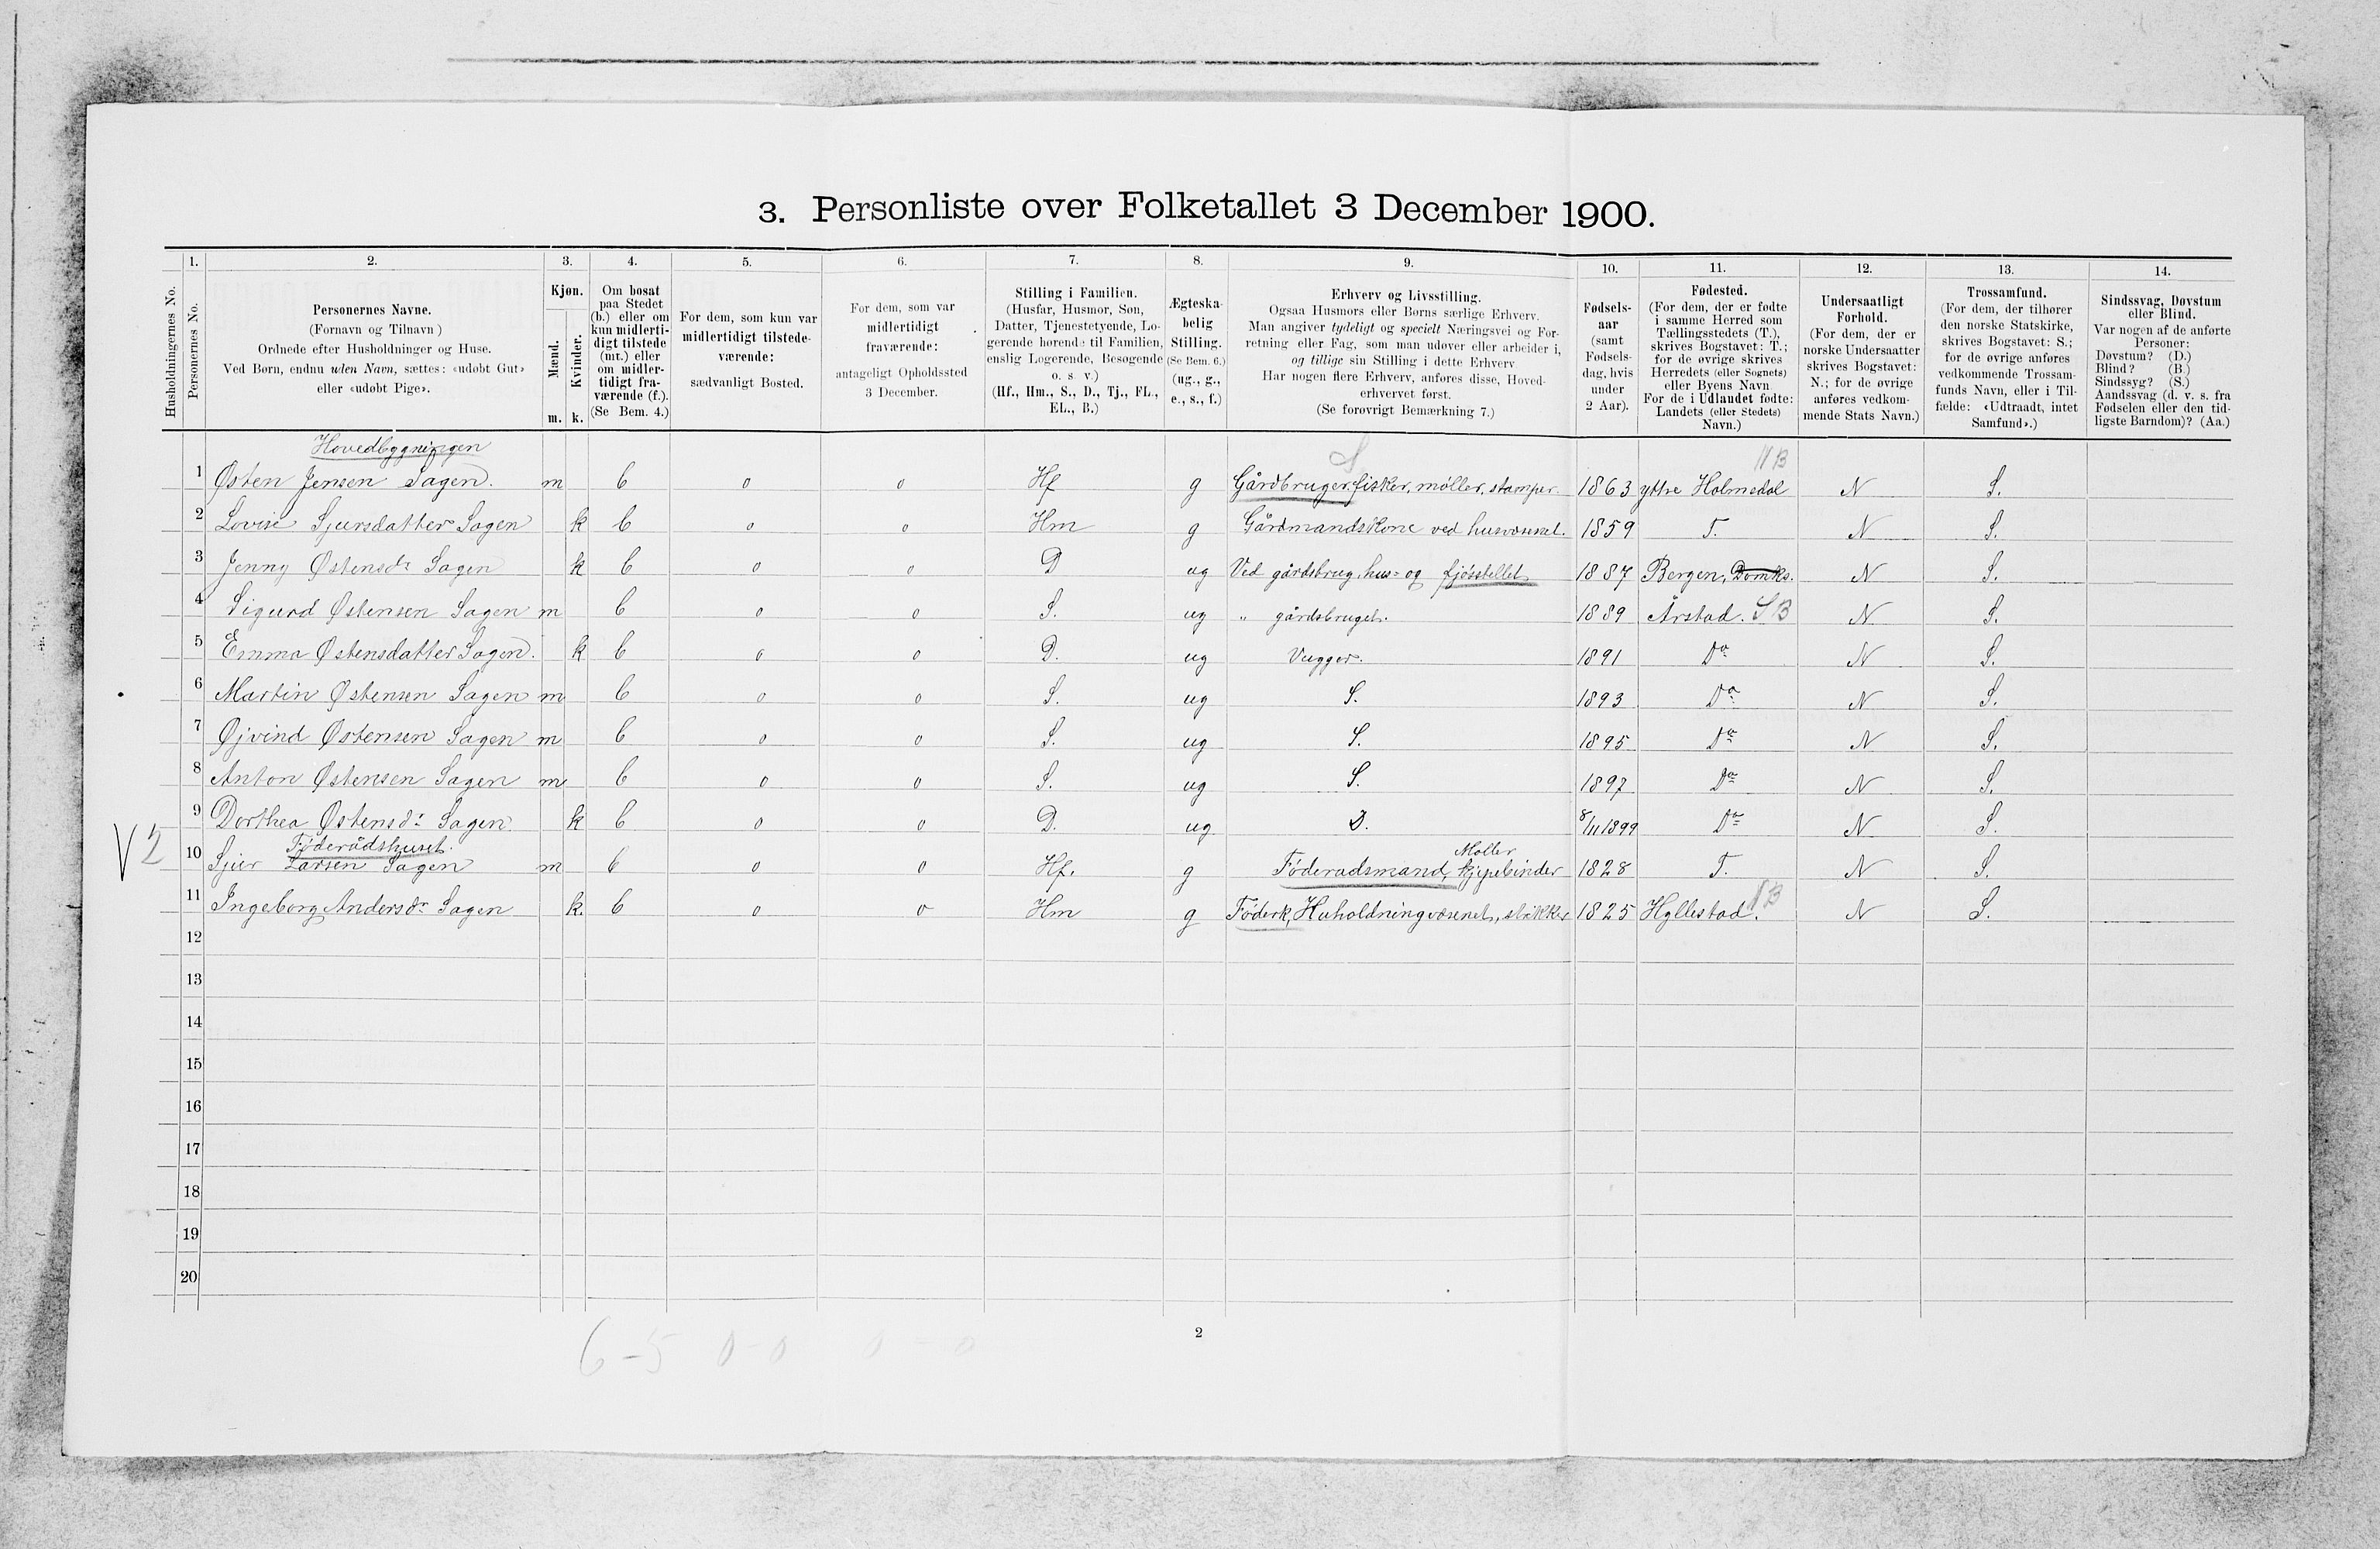 3. Personliste over Folketallet 3 December 1900.
1. 2. 3. 4. 5. 6. 7. 8. 9. 10. 11. 12. 13. 14.
Husholdningernes No.
Personernes No.
Personernes Navne.
(Fornavn og Tilnavn)
Ordnede efter Husholdninger og Huse.
Ved Børn, endnu uden Navn, sættes: «udøbt Gut»
eller «udøbt Pige».
Kjøn.
Mænd.
Kvinder.
m. k.
Om bosat
paa Stedet
(b.) eller om
kun midlerti-
digt tilstede
(mt.) eller
om midler-
tidigt fra-
værende (f.).
(Se Bem. 4.)
For dem, som kun var
midlertidigt tilstede-
værende:
sædvanligt Bosted.
For dem, som var
midlertidigt
fraværende:
antageligt Opholdssted
3 December.
Stilling i Familien.
(Husfar, Husmor, Søn,
Datter, Tjenestetyende, Lo-
gerende hørende til Familien,
enslig Logerende, Besøgende
o. s. v.)
(Hf., Hm., S., D., Tj., FL.,
EL., B.)
Ægteska-
belig
Stilling.
(Se Bem. 6.)
(ug., g.,
e., s., f.)
Erhverv og Livsstilling.
Ogsaa Husmors eller Børns særlige Erhverv.
Man angiver tydeligt og specielt Næringsvei og For-
retning eller Fag, som man udøver eller arbeider i,
og tillige sin Stilling i dette Erhverv
Har nogen flere Erhverv, anføres disse, Hoved-
erhvervet først.
(Se forøvrigt Bemærkning 7.)
Fødsels-
aar
(samt
Fødsels-
dag, hvis
under
2 Aar).
Fødested.
(For dem, der er fødte
i samme Herred som
Tællingsstedets (T.),
skrives Bogstavet: T.;
for de øvrige skrives
Herredets (eller Sognets)
eller Byens Navn
For de i Udlandet fødte:
Landets (eller Stedets)
Navn.)
Undersaatligt
Forhold.
(For dem, der er
norske Undersaatter
skrives Bogstavet:
N.; for de øvrige
anføres vedkom-
mende Stats Navn.)
Trossamfund.
(For dem, der tilhører
den norske Statskirke,
skrives Bogstavet: S.;
for de øvrige anføres
vedkommende Trossam-
funds Navn, eller i Til-
fælde: «Udtraadt, intet
Samfund».)
Sindssvag, Døvstum
eller Blind.
Var nogen af de anførte
Personer:
Døvstum? (D.)
Blind? (B.)
Sindssyg? (S.)
Aandssvag (d. v. s. fra
Fødselen eller den tid-
ligste Barndom)? (Aa.)
Hovedbygningen
1 Østen Jensen Sagen. m b o o Hf g Gårdbruger, fisker, møller, stamper. 1863 yttre Holmedal N S.
2 Lovise Sjursdatter Sagen k b o o Hm g Gårdmandskone ved husvæsenet. 1859 T. N S.
3 Jenny Østensdr Sagen k b o o D ug Ved gårdsbrug, hus- og fjøsstellet 1887 Bergen, Domks. N S.
4 Sigurd Østensen Sagen m b o o S. ug " gårdsbruget. 1889 Årstad. SB N S.
5 Emma Østensdatter Sagen. k b o o D. ug Vugger. 1891 Do N S.
6 Martin Østensen Sagen m b o o S. ug S. 1893 Do N S.
7 Øjvind Østensen Sagen m b o o S. ug S. 1895 Do N S.
8 Anton Østensen Sagen m b o o S. ug S. 1897 Do N S.
9 Dorthea Østensdr Sagen k b o o D. ug D. 8/11 1899 Do N S.
Føderådshuset.
Møller
10 Sjur Larsen Sagen m b o o Hf. g Føderadsmand, kjipebinder 1828 T. N S.
11 Ingeborg Andersdr Sagen k. b o o Hm g Føderk, Huholdningvæsenet, strikker 1825 Hyllestad. N S.
V 2
12
13
14
15
16
17
18
19
20
6-5 0-0 0-0
2